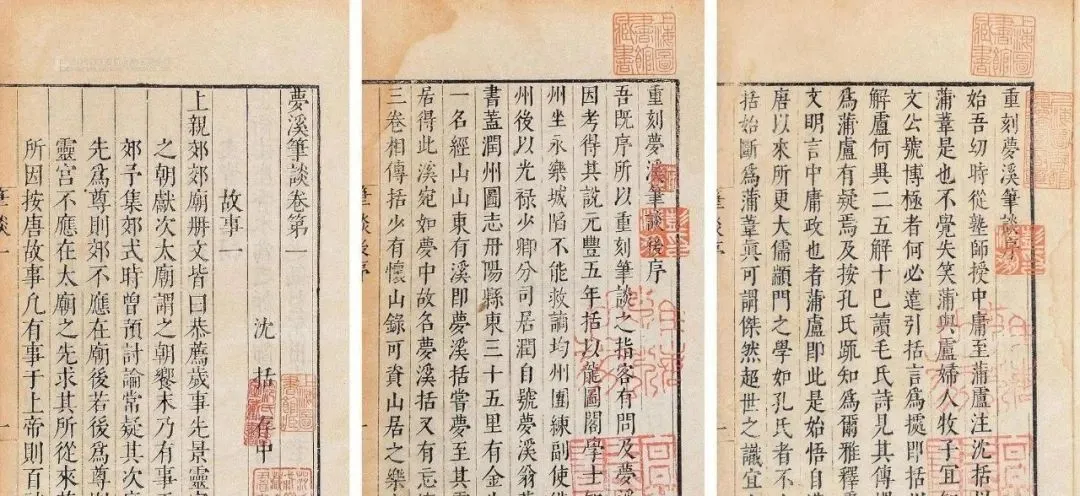 上海圖書館藏書
重刻夢溪筆談序
始吾幼時從塾師授中庸至蒲盧注沈括
蒲葦是也不覺失笑蒲與盧婦人牧子宜
文公號博極者何必遠引括言為據即括
解盧何與二五解十巳讀毛氏詩見其傳
爲蒲盧有疑焉及按孔氏䟽知爲爾雅釋
文明言中庸政也者蒲盧即此是始悟自
唐以來所更大儒顓門之學如孔氏者不
括始斷爲蒲葦眞可謂傑然超世之識宜
上海圖書館藏書
重刻夢溪筆談後序
吾既序所以重刻筆談之指客有問及夢
因考得其說元豐五年括以龍圖閣學士
州坐永樂城䧟不能救謫均州團練副使
州後以光祿少卿分司居潤自號夢溪翁
書蓋潤州圖志丹陽縣東三十五里有金
一名經山山東有溪即夢溪括嘗夢至其
居得此溪宛如夢中故名夢溪括又有忘
三卷相傳括少有懷山錄可資山居之樂
筆談後序
夢溪筆談卷第一
沈括存中
故事一
上親郊郊廟冊文皆曰恭薦歲事先景靈
之朝獻次太廟謂之朝饗末乃有事
郊予集郊式時曾預討論常疑其次
先爲尊則郊不應在廟後若後爲尊
靈宮不應在太廟之先求其所從來
所因按唐故事凡有事于上帝則百
筆談一